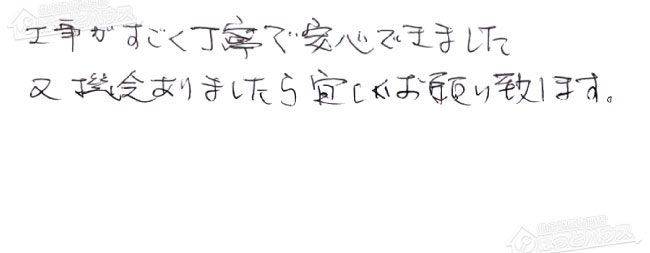 工事がすごく丁寧で安心できました
又機会ありましたら宜しくお願い致します。